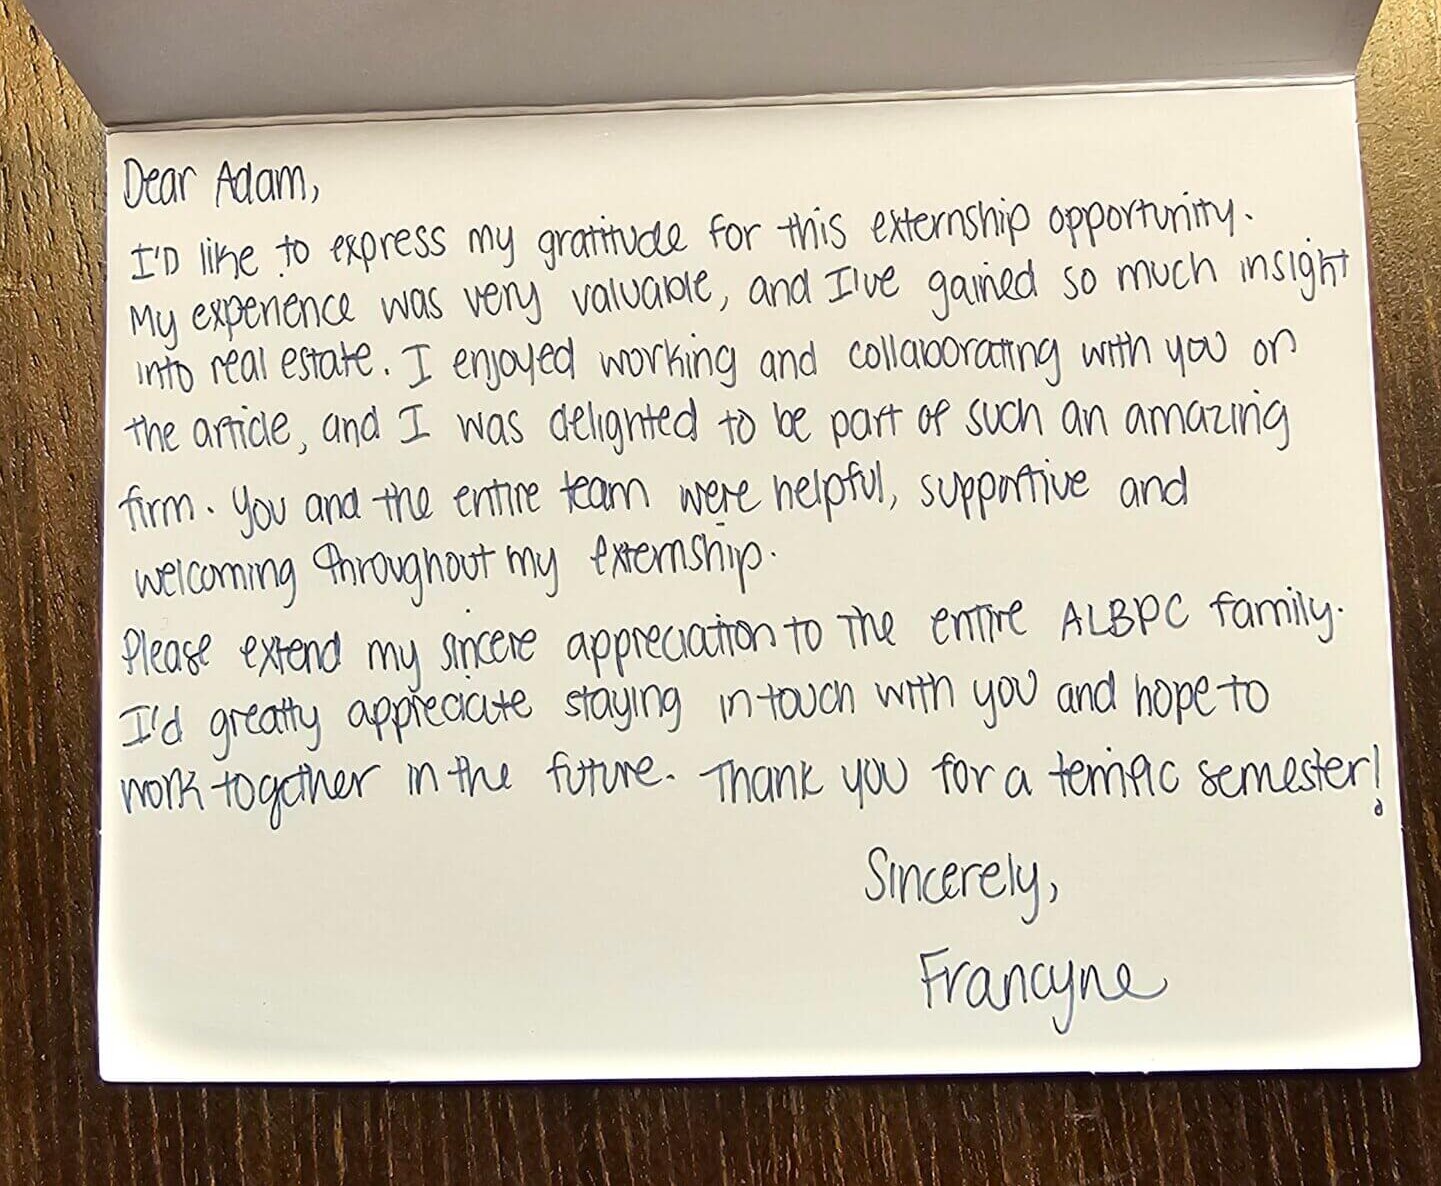 Dear Adam,
I'D like to express my gratitude for this externship opportunity.
My experience was very valuable, and I've gained so much insight
into real estate. I enjoyed working and collaborating with you on
the article, and I was delighted to be part of such an amazing
firm. You and the entire team were helpful, supportive and
welcoming throughout my externship.
Please extend my sincere appreciation to the entire ALBPC family.
I'd greatly appreciate staying in touch with you and hope to
work together in the future. Thank you for a terrific semester!
Sincerely,
Francyne